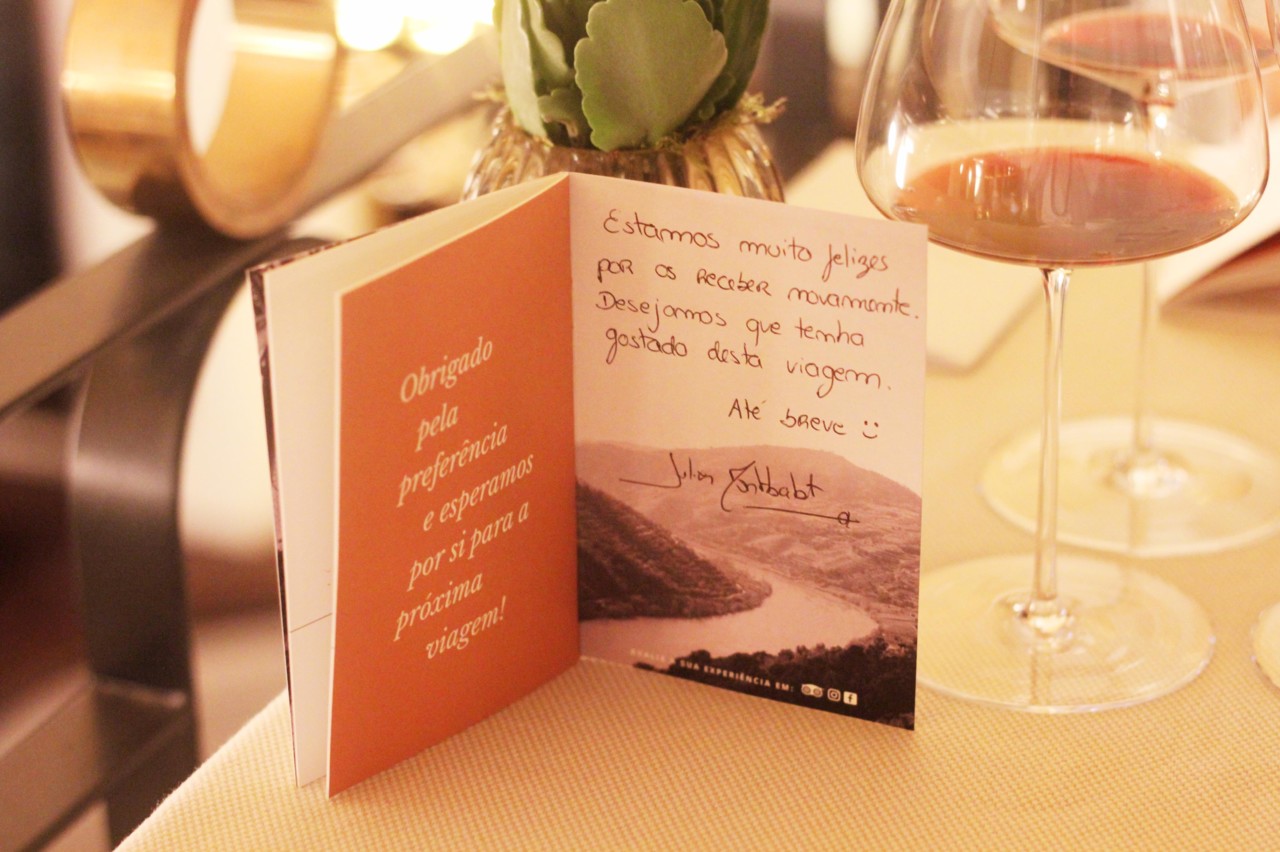 Obrigado
pela
preferência
e esperamos
por si para a
próxima
viagem!
Estamos muito felizes
por os receber novamente.
Desejamos que tenha
gostado desta viagem.
Até breve :)
SUA EXPERIÊNCIA EM: